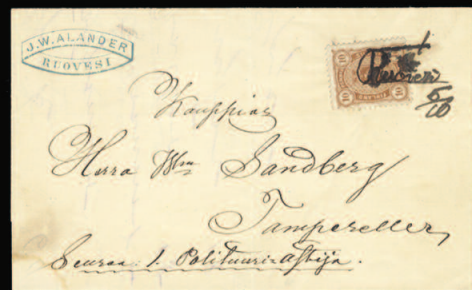 J.W. ALANDER
RUOVESI
10 10
Ruovesi
6/10
Kauppias
Herra Wm Sandberg
Tampereller
Seuraa: 1. Polituuri-Astija.